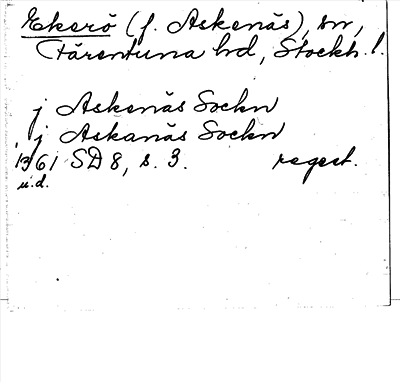 Ekerö (f. Askenäs), sn,
Färentuna hd, Stockh. l.
j Askenäs Sockn
j Askanäs Sockn
1361 SD 8, s. 3. regest.
u.d.